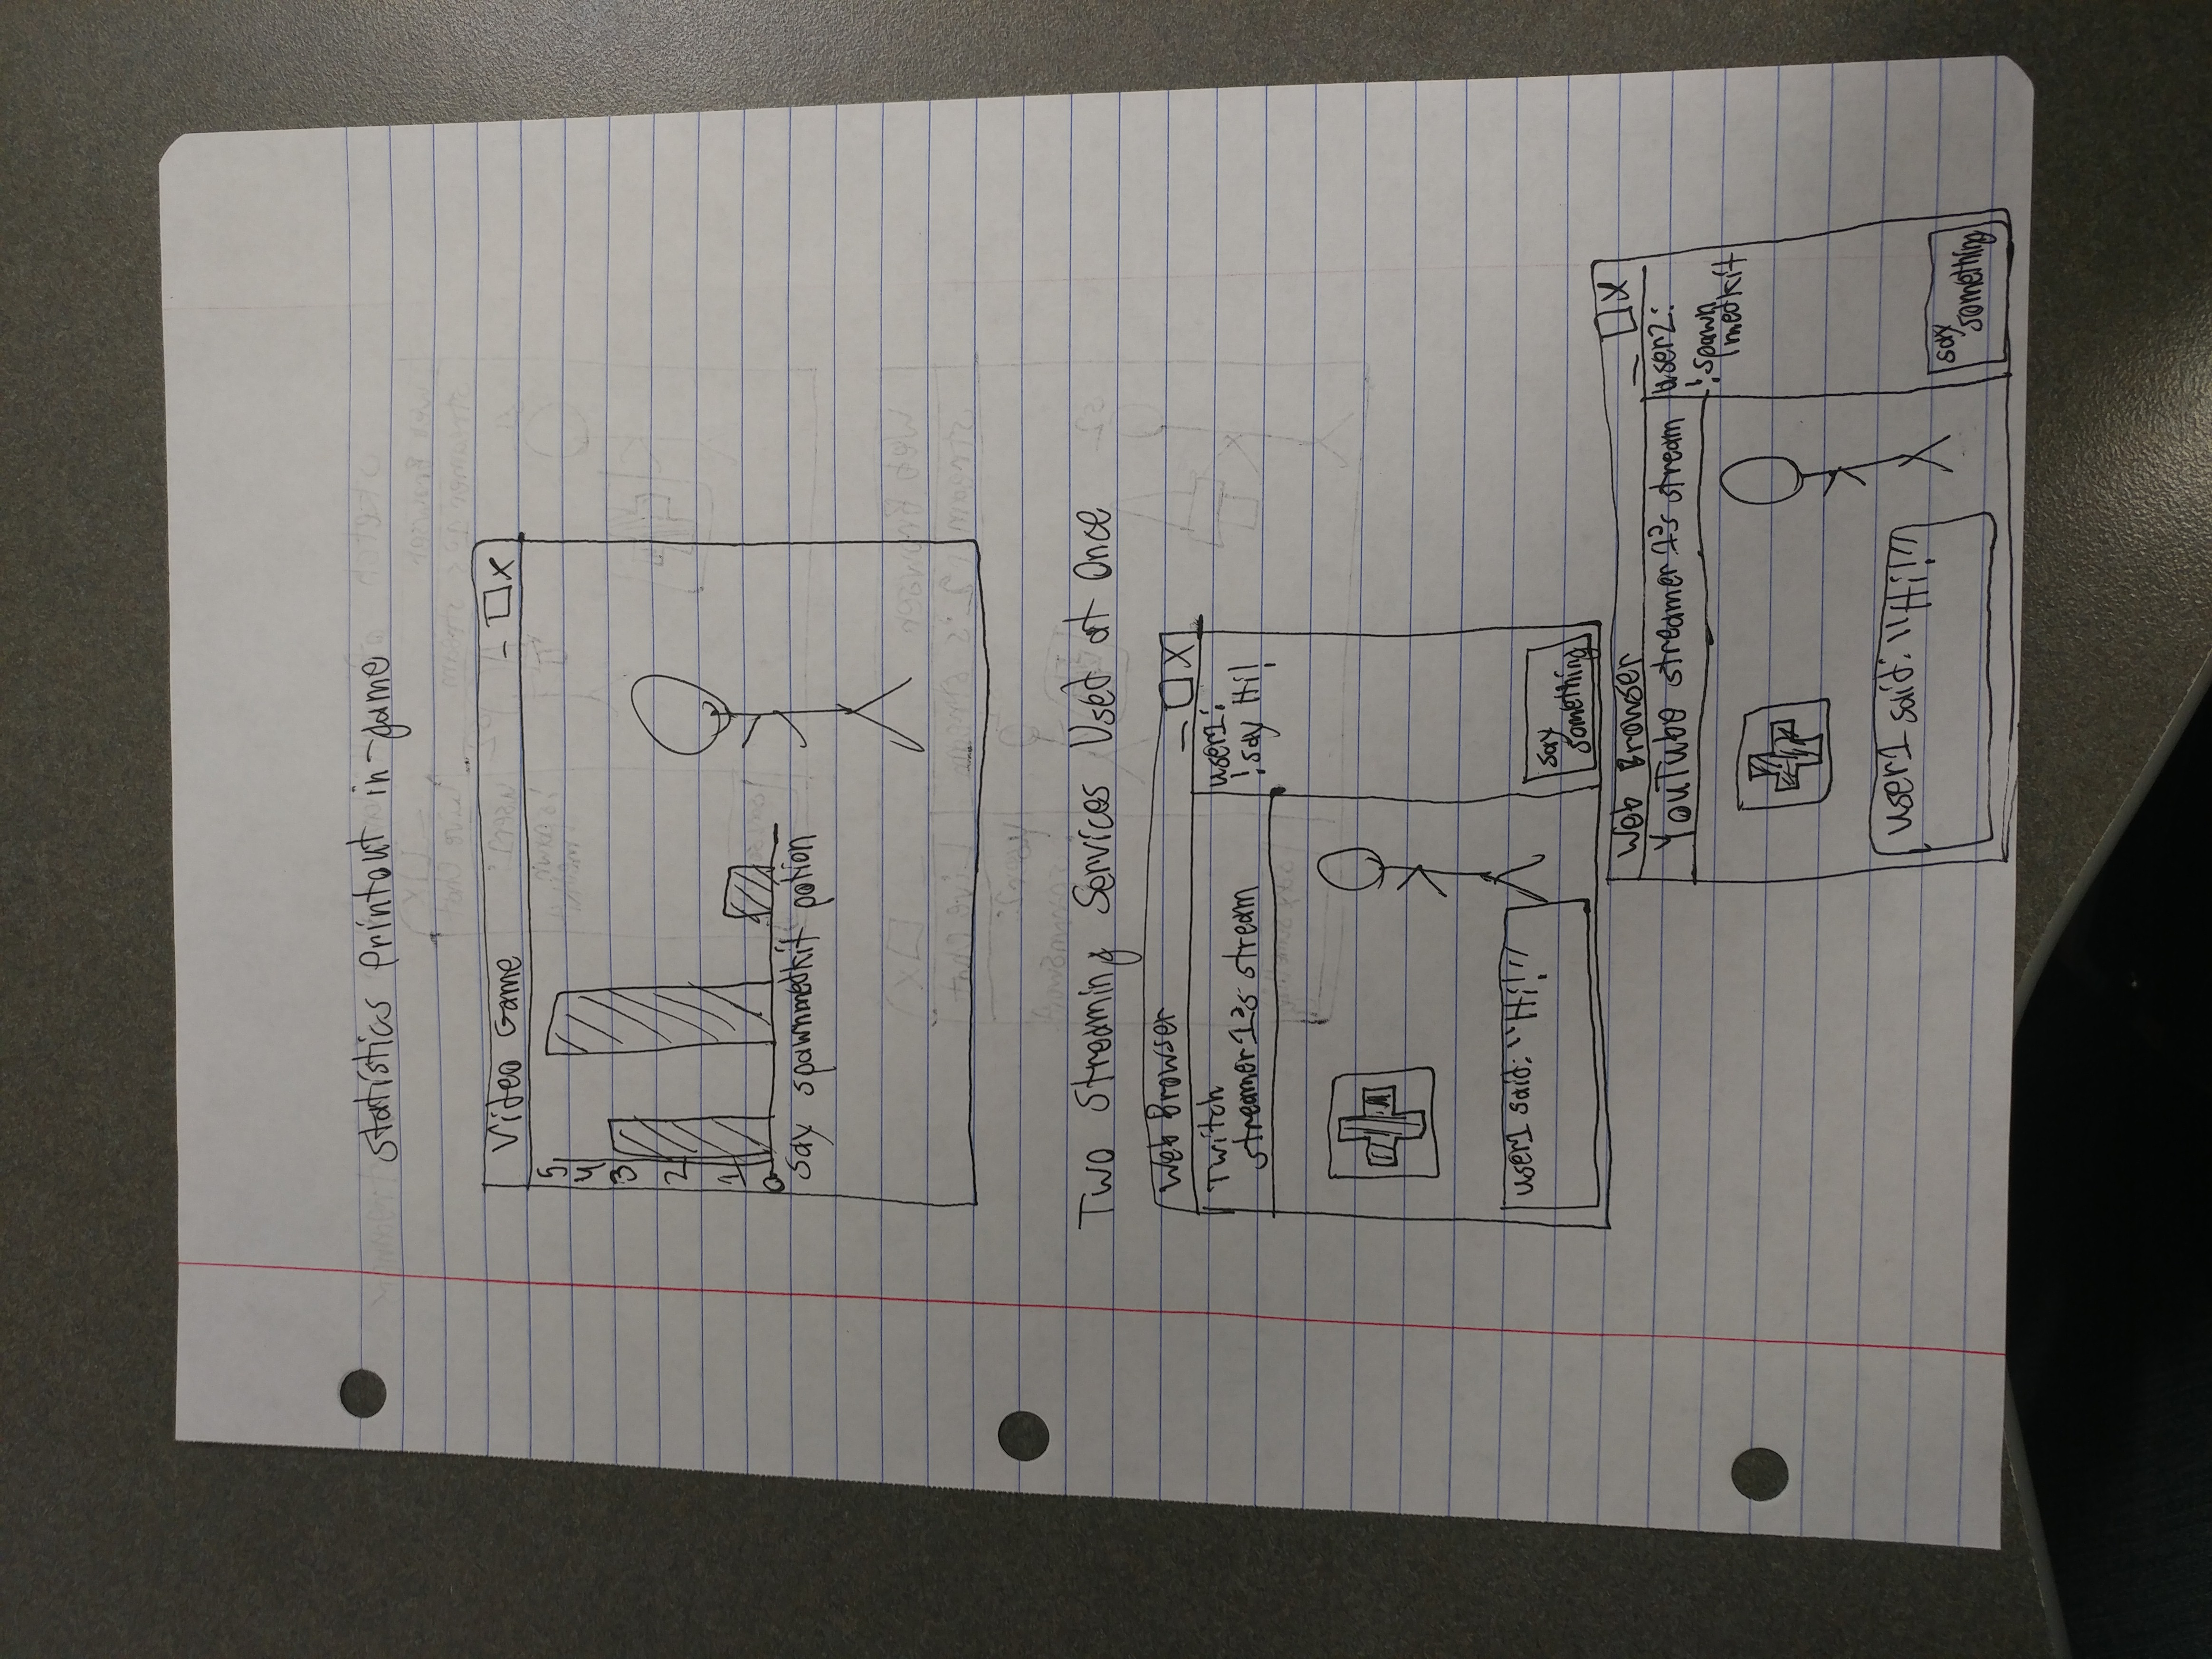 Statistics printout in-game
Video Game - □ X
5
4
3
2
1
0
say spawnmedkit potion
Two Streaming Services Used at Once
Web Browser - □ X
Twitch
streamer1's stream
user1:
!say Hi!
user1 said: "Hi!"
say
something
Web Browser - □ X
YouTube streamer1's stream
user2:
!spawn
medkit
user1 said: "Hi!"
say
something